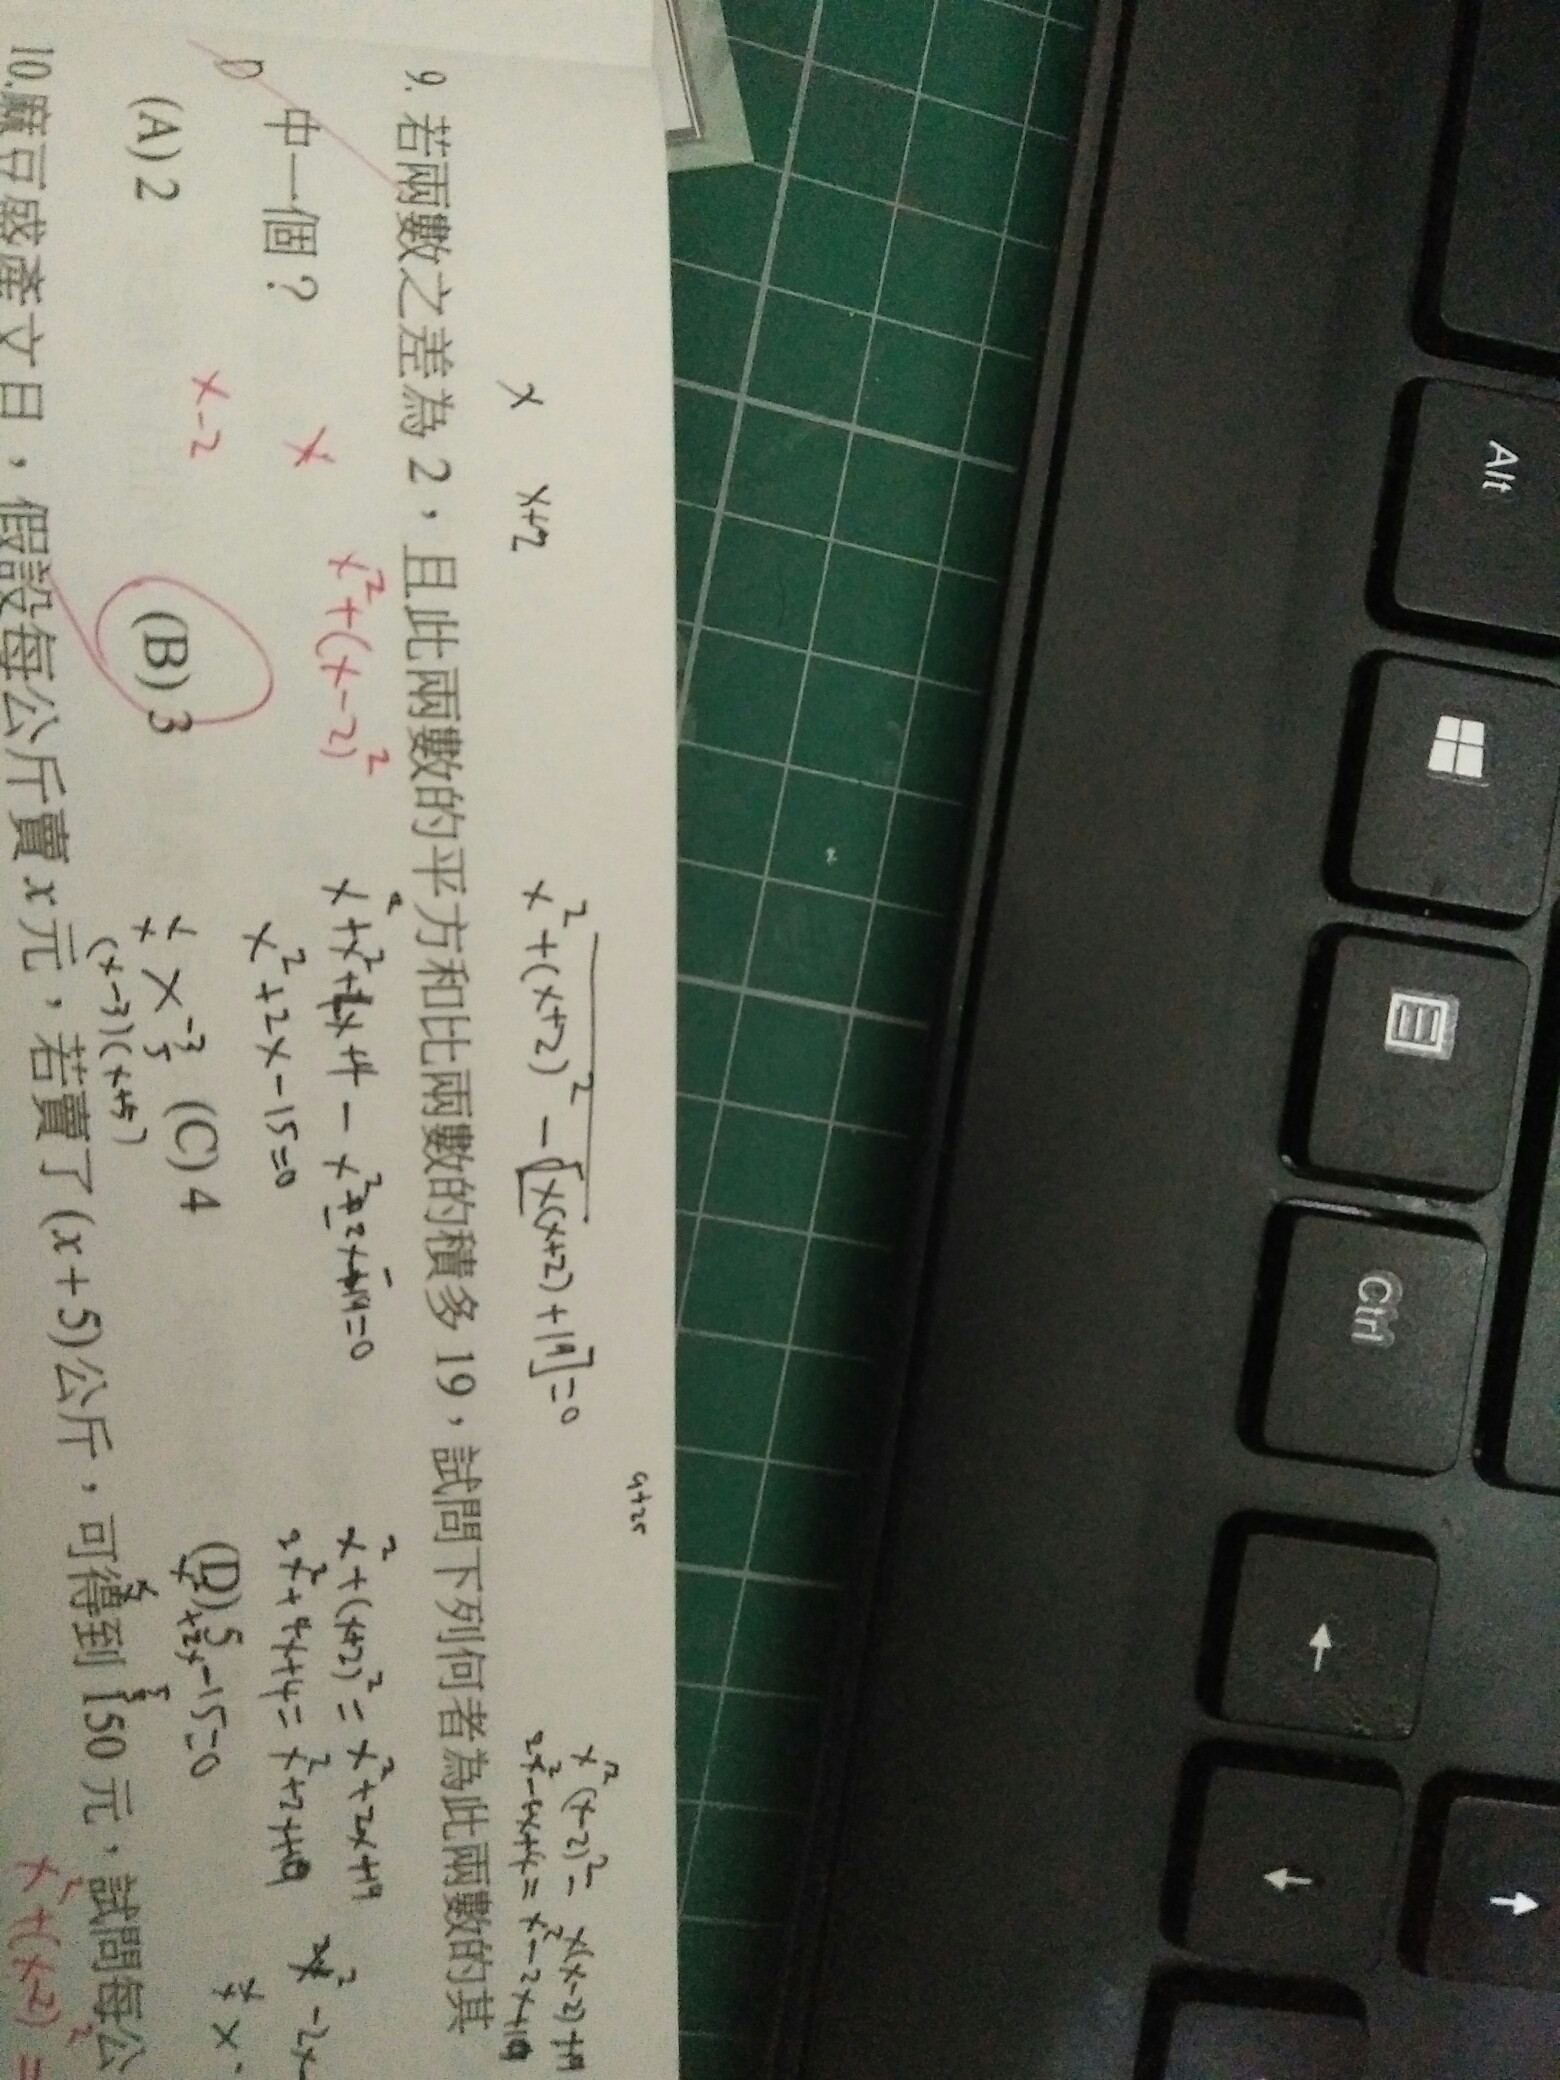 9+25
x x+2 x²+(x+2)²-[x(x+2)+19]=0
x²(x-2)²= x(x-2)+19
2x²-4x+4=x²-2x+19
9. 若兩數之差為 2，且此兩數的平方和比兩數的積多 19，試問下列何者為此兩數的其
中一個？
x x²+(x-2)²
x-2
x²+2x-15=0
x²+(x+2)²=x²+2x+19
(x-3)(x+5)
x²+2x-15=0
(A) 2 (B) 3 (C) 4 (D) 5
10.麻豆盛產文旦，假設每公斤賣 x 元，若賣了 (x + 5)公斤，可得到 150 元，試問每公
x²+(x-2)²=
Alt
Ctrl